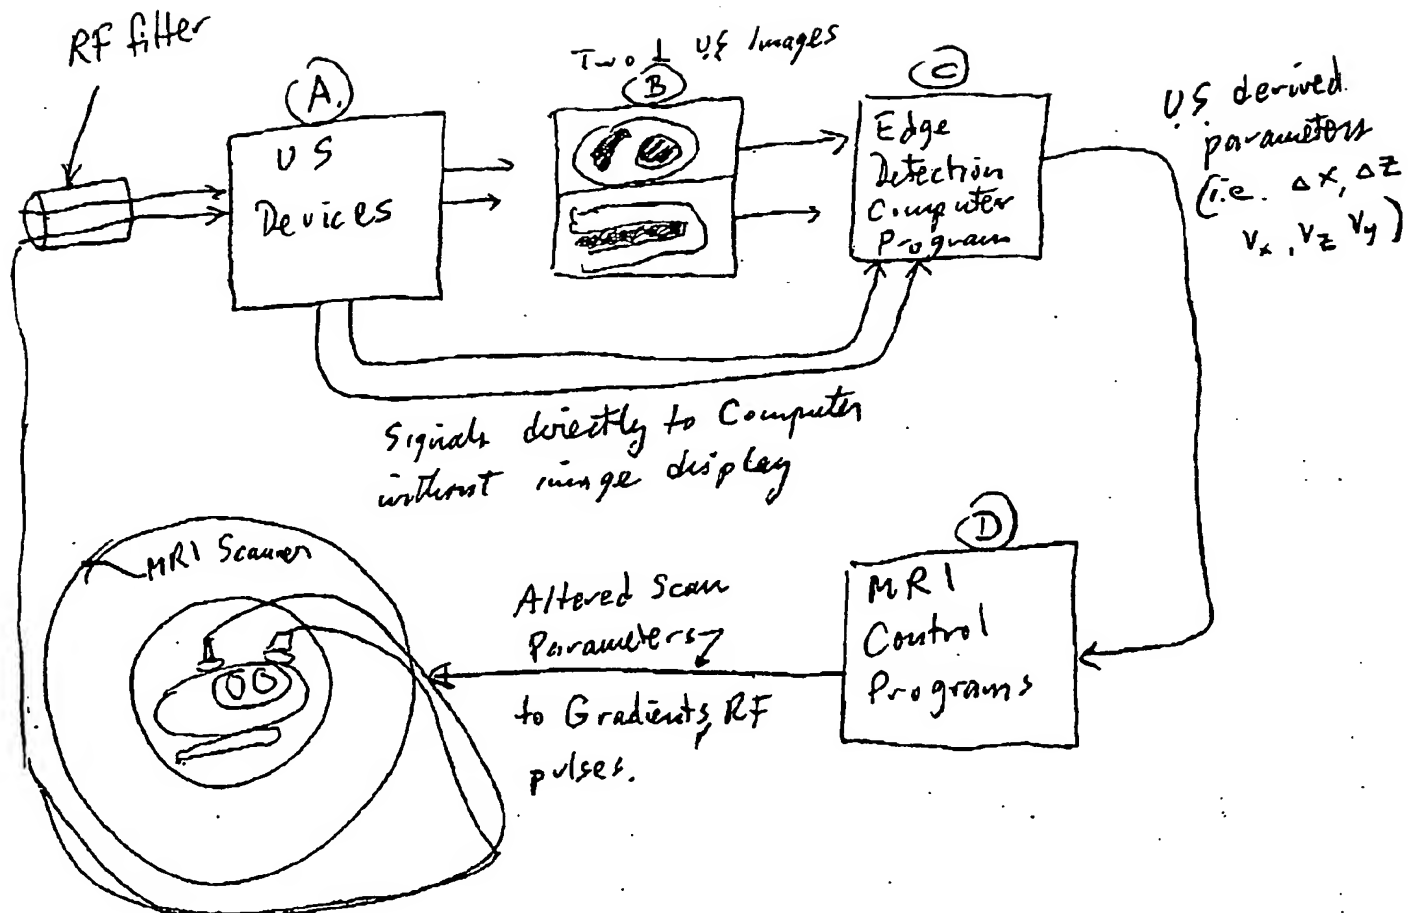 RF filter
A.
US
Devices
Two ⊥ US Images
B
C
Edge
Detection
Computer
Program
U.S. derived
parameters
(i.e. Δx, Δz
Vx, Vz Vy)
Signals directly to Computer
without image display
D
MRI
Control
Programs
Altered Scan
Parameters
to Gradients, RF
pulses.
MRI Scanner